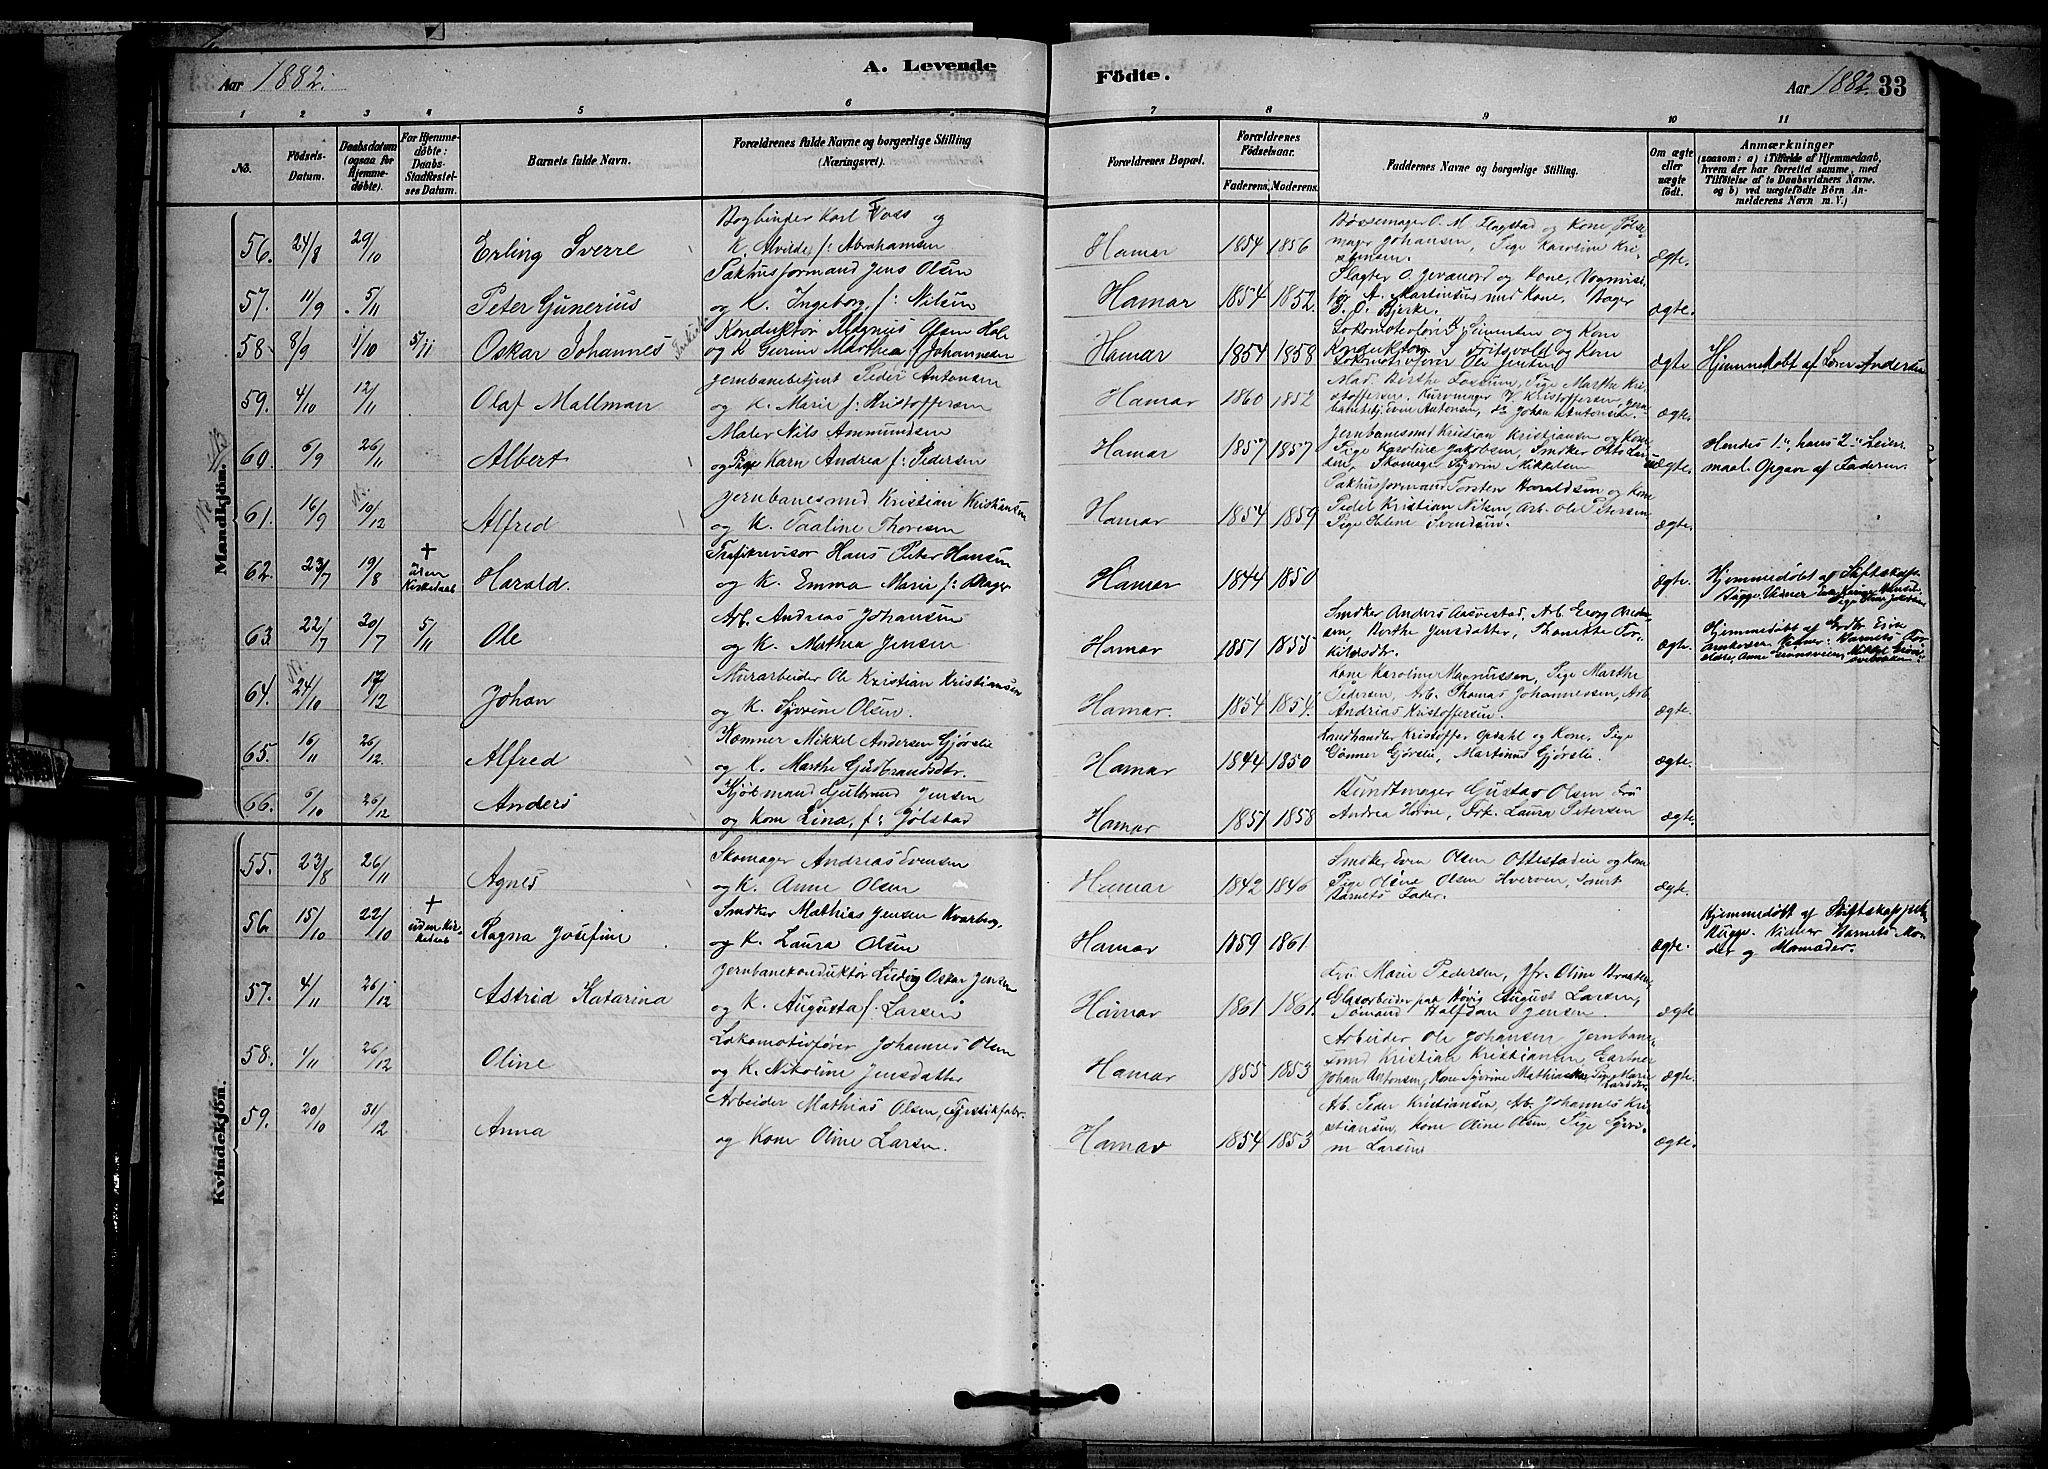 Aar 1882.
A. Levende
Födte.
Aar 1882. 33
1 2 3 4 5 6 7 8 9 10 11
No.
Födsels-Datum.
Daabsdatum (ogsaa for Hjemme-döbte).
For Hjemme-döbte: Daabs-Stadfæstel-ses Datum.
Barnets fulde Navn.
Forældrenes fulde Navne og borgerlige Stilling (Næringsvei).
Forældrenes Bopæl.
Forældrenes Födselsaar.
Faderens. Moderens.
Faddernes Navne og borgerlige Stilling.
Om ægte eller uægte födt.
Anmærkninger
(saasom: a) i Tilfælde af Hjemmedaab,
hvem der har forrettet samme, med
Tilföielse af to Daabsvidners Navne.
og b) ved uægtefödte Börn An-
melderens Navn m. V.)
Mandkjön.
56. 24/8 29/10 Erling Sverre
Bogbinder Karl Foss og
K. Alvilde f: Abrahamsen
Hamar 1854 1856
Bøssemager O. M. Flagstad og Kone, Pølse-
mager Johansen, Pige Karoline Kri-
stensen.
ægte.
57. 11/9 5/11 Peter Gunerius
Pakhusformand Jens Olsen
og K. Ingeborg f: Nilsen
Hamar 1854 1852
ægte.
58. 8/9 1/10 5/11 Oskar Johannes
Konduktør Magnus Olsen Hole
og K Gurine Marthea f: Johannesen
Hamar 1854 1858
Lokomotivfører Ole Jensen
ægte.
Hjemmedøbt af Lærer Andersen
59. 4/10 12/11 Olaf Mallman
Jernbanebetjent Peder Antonsen
og K. Marie f: Kristoffersen
Hamar 1860 1852
Mad. Berthe Lossum, Pige Marthe Kri-
stoffersen, Kurvemager V. Kristoffersen, Jern-
banebetjent Antonsen, Johan Antonsen.
ægte.
60. 6/9 26/11 Albert
Maler Nils Ammundsen
og Pige Karn Andrea f: Pedersen
Hamar 1857 1857
Jernbanesmed Kristian Kristiansen og Kone
Pige Karoline Jakobsen, Snedker Otto Larsen,
Skomager Syvrin Mikkelsen
uægte.
Hendes 1ste, hans 2det Leier-
maal. Opgave af Faderen.
61. 16/9 10/12 Alfred
Jernbanesmed Kristian Kristiansen
og K. Paaline Thoresen
Hamar 1854 1859
Pakhusformand Torsten Haraldsen og Kone
Pedel Kristian Nilsen, Arb. Ole Petersen
Pige Helene Svendsen.
ægte.
62. 23/7 19/8 † uden Kirkedaab Harald.
Trafikrevisor Hans Peter Hansen
og K. Emma Marie f: Krager
Hamar 1844 1850
ægte.
Hjemmedøbt af Stiftskapellan
Bugge.
63. 22/7 20/7 5/11 Ole
Arb. Andreas Johansen
og K. Mathea Jensen
Hamar 1851 1855
Snedker Anders Aasvestad, Arb. Georg Ander-
sen, Berthe Jensdatter, Thonette Tor-
kildsdtr.
ægte.
64. 24/10 17/12 Johan
Murarbeider Ole Kristian Kristiansen
og K. Syvrine Olsen.
Hamar. 1854 1854.
Kone Karoline Magnussen, Pige Marthe
Pedersen, Arb. Thomas Johannessen, Arb.
Andreas Kristoffersen.
ægte.
65. 16/11 26/12 Alfred
Kemner Mikkel Andersen Gjørslie
og K. Marthe Gudbrandsdtr.
Hamar 1844 1850
Landhandler Kristoffer Opdahl og Kone, Pige
Gønner Gjørslie, Martinus Gjørslie.
ægte.
66. 6/10 26/12 Anders
Kjøbmand Gulbrand Jensen
og Kone Lina, f: Jølstad
Hamar 1851 1858
Bundtmager Gustav Olsen Fru
Andrea Horne, Frk. Laura Petersen
ægte.
Kvindekjön.
55. 23/8 26/11 Agnes
Skomager Andreas Evensen
og K. Anne Olsen
Hamar 1842 1846
Snedker Even Olsen Ottestadeie og Kone
Pige Oline Olsen Hverven, samt
Barnets Fader.
ægte.
56. 15/10 22/10 † uden Kir-kedaab Ragna Josefine
Snedker Mathias Jensen Kvarberg
og K. Laura Olsen
Hamar 1859 1861.
ægte.
Hjemmedøbt af Stiftskappelan
Bugge. Vidner Barnets Mo-
der og Mormoder.
57. 4/11 26/12 Astrid Katarina
Jernbanekonduktør Ludvig Oskar Jensen
og K. Augusta f. Larsen
Hamar 1861 1861.
Fru Marie Pedersen, Jfr. Oline Braaten,
Glasarbeider paa Høvig August Larsen,
Sømand Halfdan Jensen.
ægte
58. 1/11 26/12 Oline
Lokomotivfører Johannes Olsen
og K. Nikoline Jensdatter
Hamar 1855 1853
Arbeider Ole Johansen, Jernbane-
smed Kristian Kristiansen Gartner
Johan Antonsen, Kone Syvrine Mathiasen, Pige Marie
ægte.
59. 20/10 31/12 Anna
Arbeider Mathias Olsen, Fyrstikfabr.
og Kone Oline Larsen.
Hamar 1854 1853
Arb. Peder Kristiansen, Arb. Johannes Kri-
stiansen, Kone Oline Olsen, Pige Syvri-
ne Larsen
ægte.